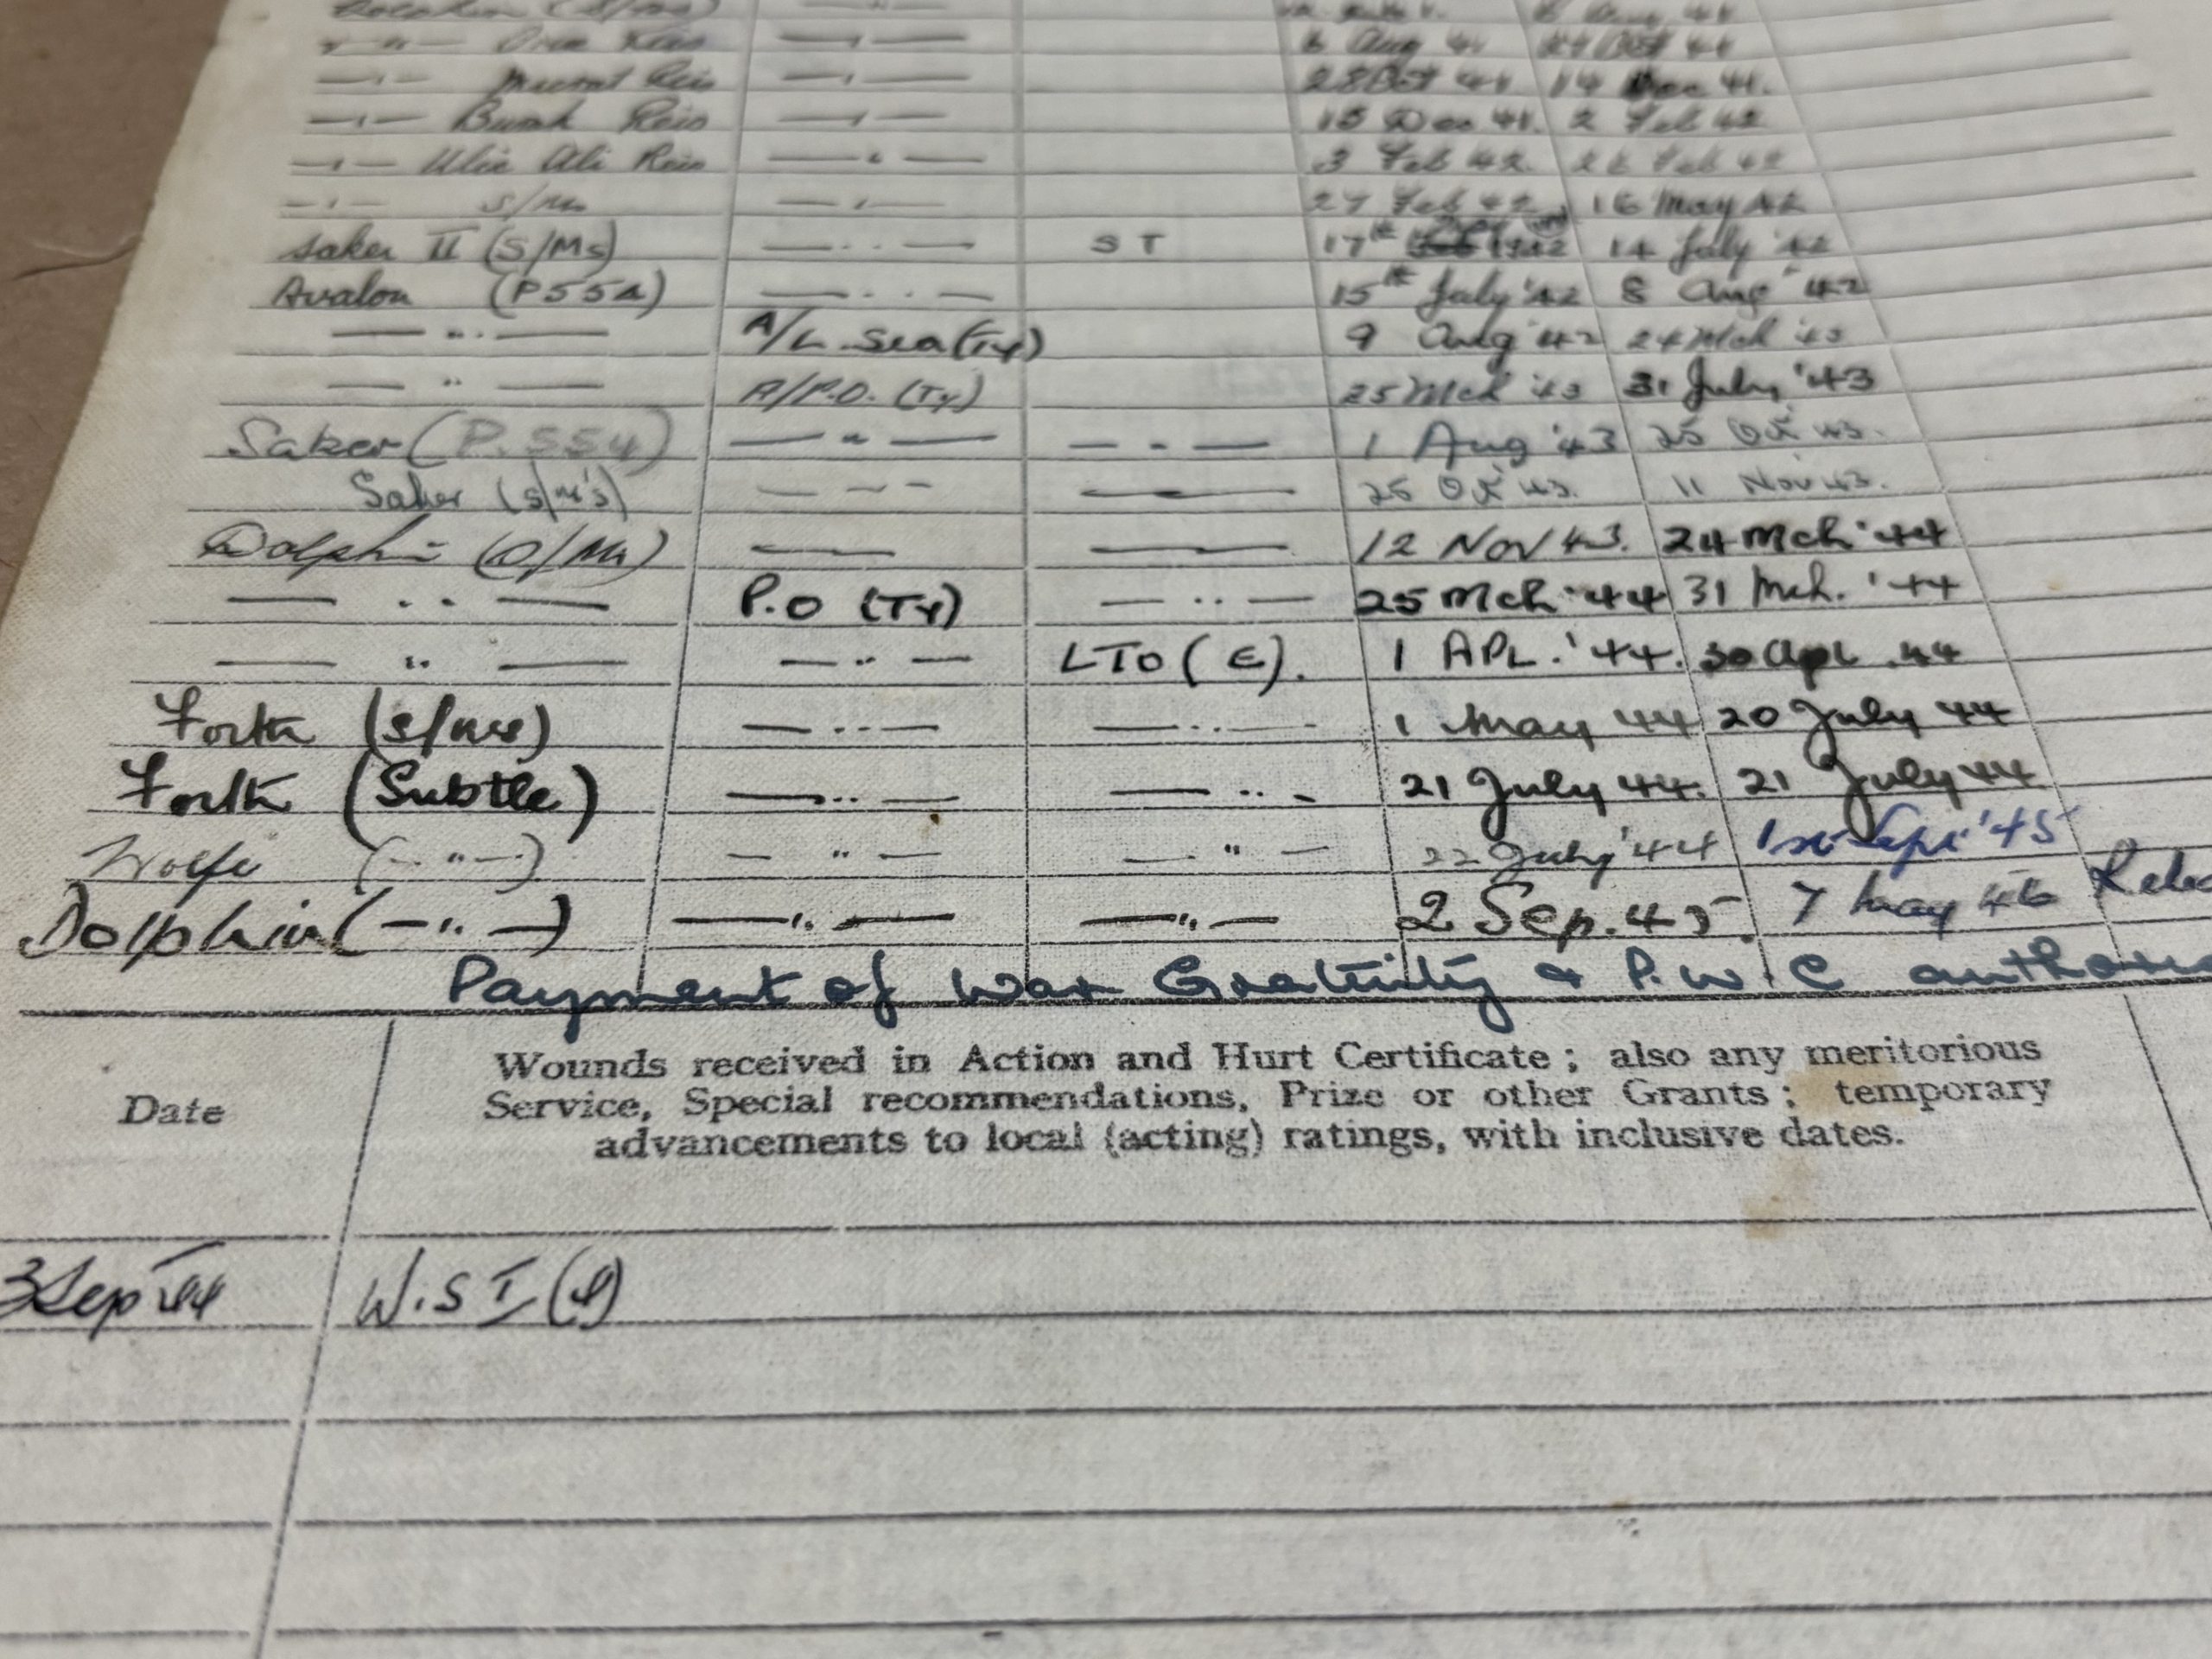 Dolphin (S/Ms) — " — 6 Aug 41
— " — Oruc Reis — " — 6 Aug 41 27 Oct 41
— " — Murat Reis — " — 28 Oct 41 14 Dec 41.
— " — Burak Reis — " — 15 Dec 41. 2 Feb 42
— " — Uluc Ali Reis — " — 3 Feb 42. 26 Feb 42
— " — S/Ms — " — 27 Feb 42 16 May 42
Saker II (S/Ms) — " — S T 17th 1942 14 July '42
Avalon (P554) — " — 15th July '42 8 Aug '42
— " — A/L. Sea (Ty) 9 Aug '42 24 Mch '43
— " — A/P.O. (Ty) 25 Mch '43 31 July '43
Saker (P.554) — " — — " — 1 Aug '43 25 Oct 43.
Saker (S/M's) — — — —— 26 Oct 43. 11 Nov 43.
Dolphin (S/Ms) —— —— 12 Nov 43. 24 Mch '44
— " — P.O (Ty) — " — 25 Mch '44 31 Mch. '44
— " — — " — LTO (E). 1 APL. '44. 30 Apl. 44
Forth (S/Ms) — " — — " — 1 May 44 20 July 44
Forth (Subtle) — " — — " — 21 July 44. 21 July 44
Wolfe (— " —) — " — — " — 22 July '44 1st Sept '45
Dolphin (— " —) — " — — " — 2 Sep. 45. 7 May 46 Relea
Payment of War Gratuity & P.W.C authoris
Date
Wounds received in Action and Hurt Certificate ; also any meritorious
Service, Special recommendations, Prize or other Grants ; temporary
advancements to local (acting) ratings, with inclusive dates.
3 Sep 44 W.S I (1)